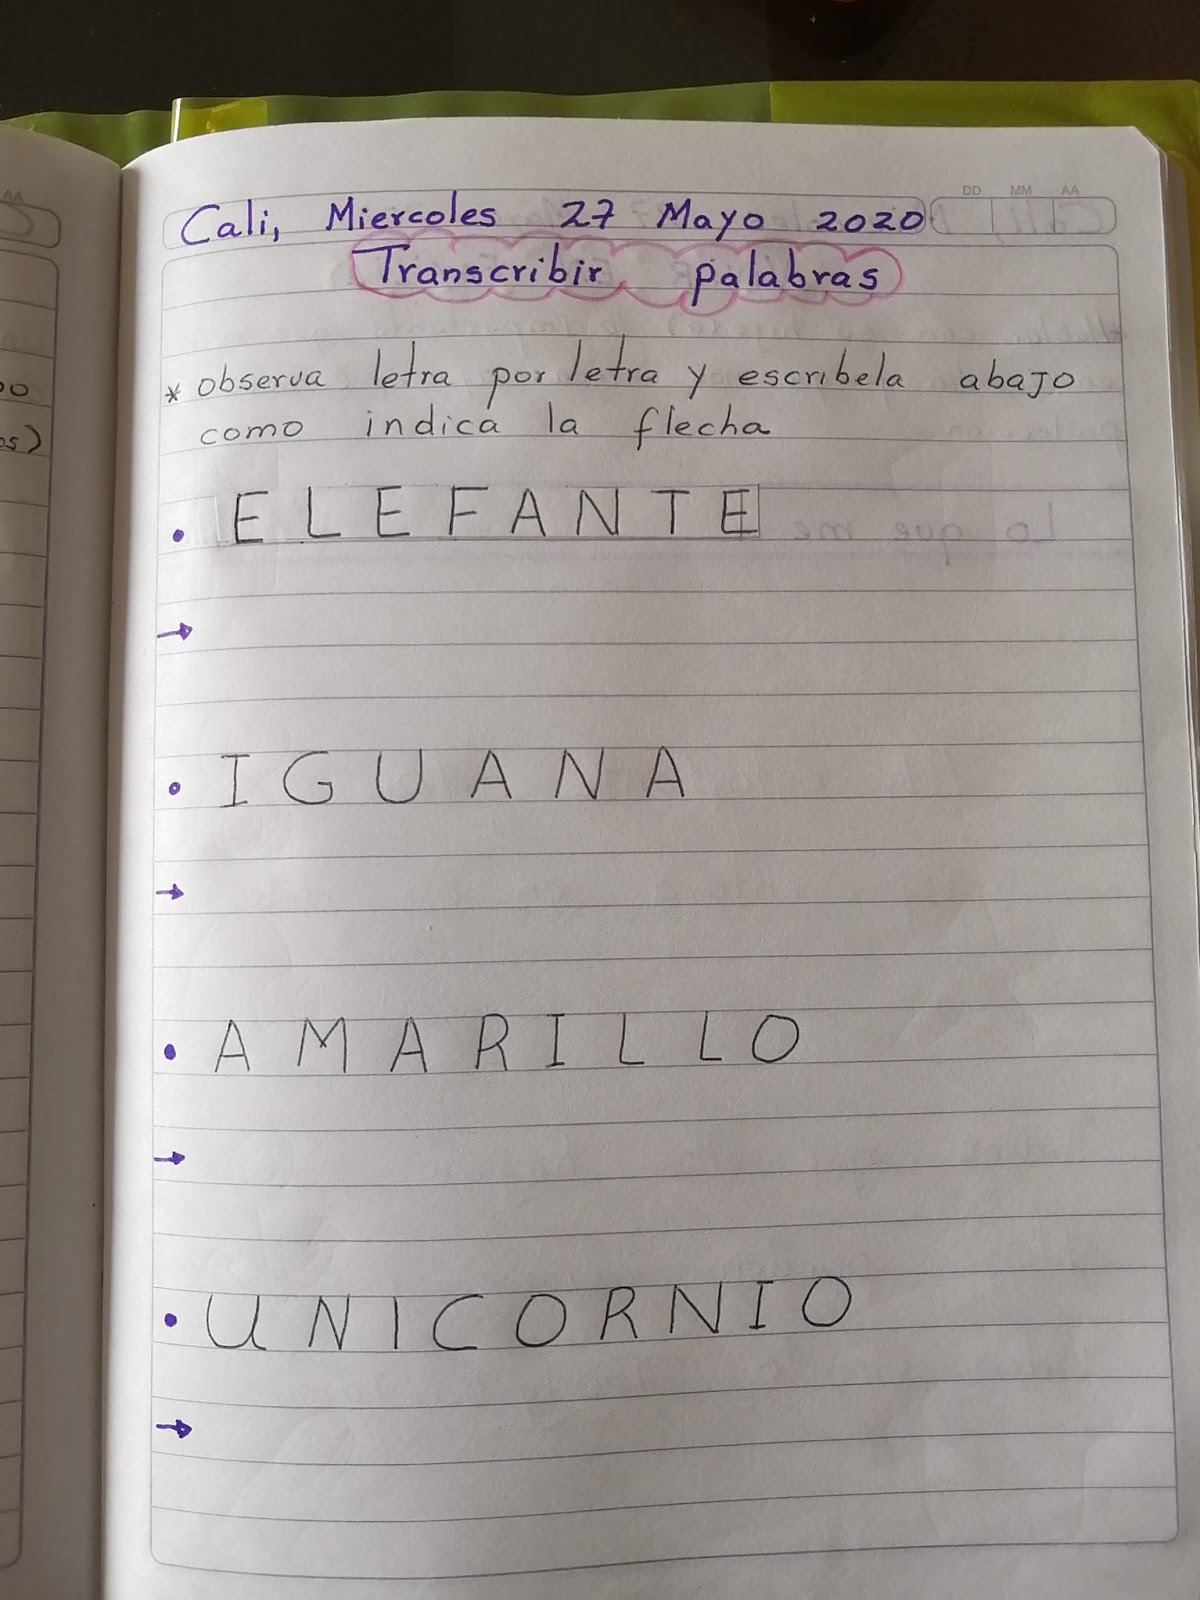 AA
DD MM AA
Cali, Miercoles 27 Mayo 2020
Transcribir palabras
* observa letra por letra y escribela abajo
como indica la flecha
• E L E F A N T E
→
• I G U A N A
→
• A M A R I L L O
→
• U N I C O R N I O
→